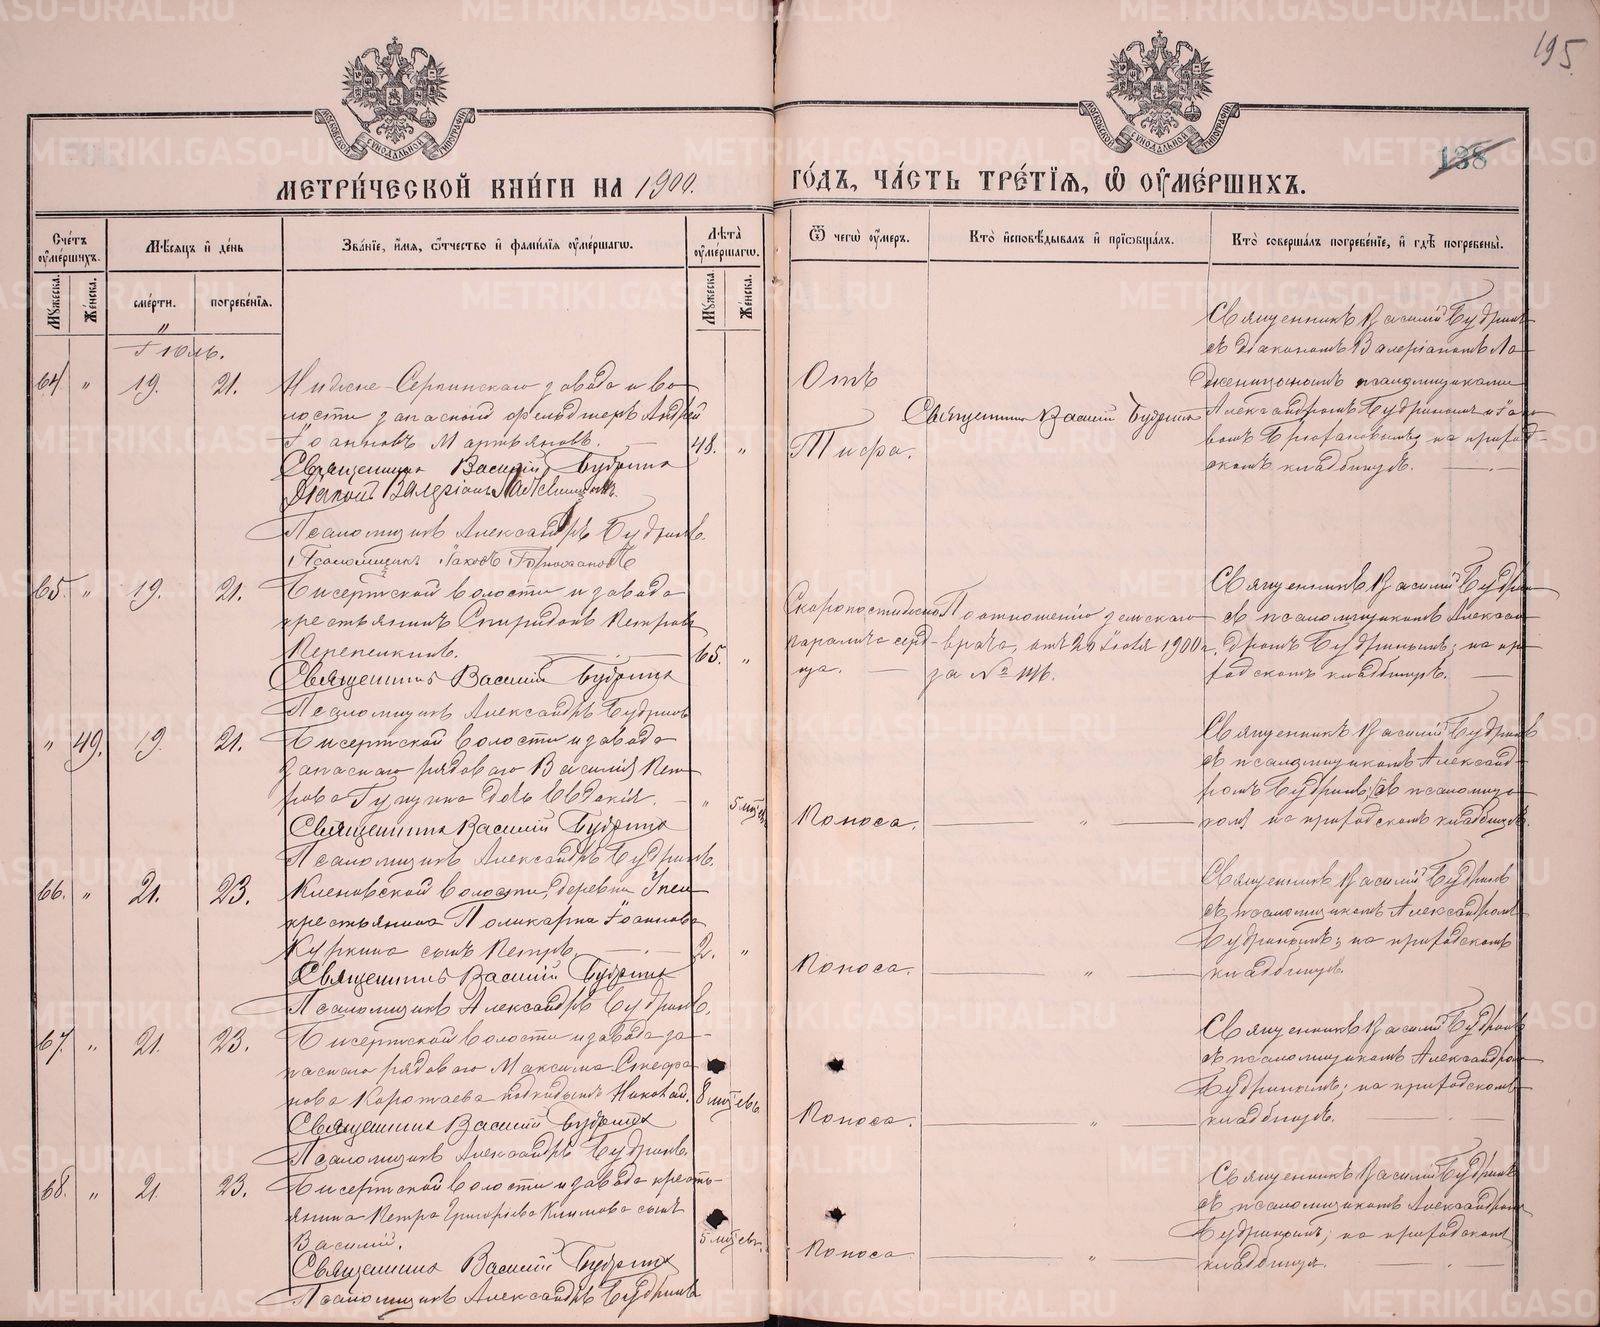 195.
138
МЕТРИЧЕСКОЙ КНИГИ НА 1900. ГОДЪ, ЧАСТЬ ТРЕТІЯ, Ѿ ОУМЕРШИХЪ.
Счетъ оумершихъ.
Мѣсяцъ и день
Званіе, имя, ѿтчество и фамилія оумершагѡ.
Лѣта оумершагѡ.
Ѿ чегѡ оумеръ.
Кто исповѣдывалъ и пріѡбщалъ.
Кто совершалъ погребеніе, и гдѣ погребены.
Мужеска.
Женска.
смерти.
погребенія.
Мужеска.
Женска.
Іюль.
64 " 19. 21.
Нижне-Сергинскаго завода и во-
лости запасной фельдшеръ Андрей
Іоанновъ Мартьяновъ. 48. "
Священникъ Василій Будринъ
Діаконъ Валеріанъ
Псаломщикъ Александръ Будринъ.
Псаломщикъ Іаковъ
Отъ
Тифа.
Священникъ Василій Будринъ
Священникъ Василій Будринъ
съ діакономъ Валеріаномъ
псаломщиками
Александромъ Будринымъ и Іако-
вомъ на приход-
скомъ кладбищѣ.
65. " 19. 21.
Бисертской волости и завода
крестьянинъ Спиридонъ Петровъ
Перепелкинъ. 65. "
Священникъ Василій Будринъ
Псаломщикъ Александръ Будринъ
Скоропостижно
паралича серд-
ца.
По отношенію земскаго
врача, отъ 20 Іюля 1900 г.
за №
Священникъ Василій Будринъ
съ псаломщикомъ Алексан-
дромъ Будринымъ; на при-
ходскомъ кладбищѣ.
" 49. 19. 21.
Бисертской волости и завода
запаснаго рядоваго Василія Пет-
рова дочь Евдокія. " 5 мѣс
Священникъ Василій Будринъ
Псаломщикъ Александръ Будринъ.
Поноса. "
Священникъ Василій Будринъ
съ псаломщикомъ Александ-
ромъ Будринъ; съ псаломщи-
комъ на приходскомъ кладбищѣ.
66. " 21. 23.
Кленовской волости, деревни
крестьянина Поликарпа Іоаннова
Куркина сынъ Петръ. 2. "
Священникъ Василій Будринъ
Псаломщикъ Александръ Будринъ.
Поноса. "
Священникъ Василій Будринъ
съ псаломщикомъ Александромъ
Будринымъ; на приходскомъ
кладбищѣ.
67. " 21. 23.
Бисертской волости и завода за-
паснаго рядоваго Максима Стефа-
нова Коротаева подкидышъ Николай. 8 мѣсяцевъ
Священникъ Василій Будринъ
Псаломщикъ Александръ Будринъ.
Поноса. "
Священникъ Василій Будринъ
съ псаломщикомъ Александромъ
Будринымъ; на приходскомъ
кладбищѣ.
68. " 21. 23.
Бисертской волости и завода кресть-
янина Петра Григорьева Климова сынъ
Василій. 5 мѣсяцевъ
Священникъ Василій Будринъ
Псаломщикъ Александръ Будринъ
Поноса "
Священникъ Василій Будринъ
съ псаломщикомъ Александромъ
Будринымъ; на приходскомъ
кладбищѣ.
METRIKI.GASO-URAL.RU